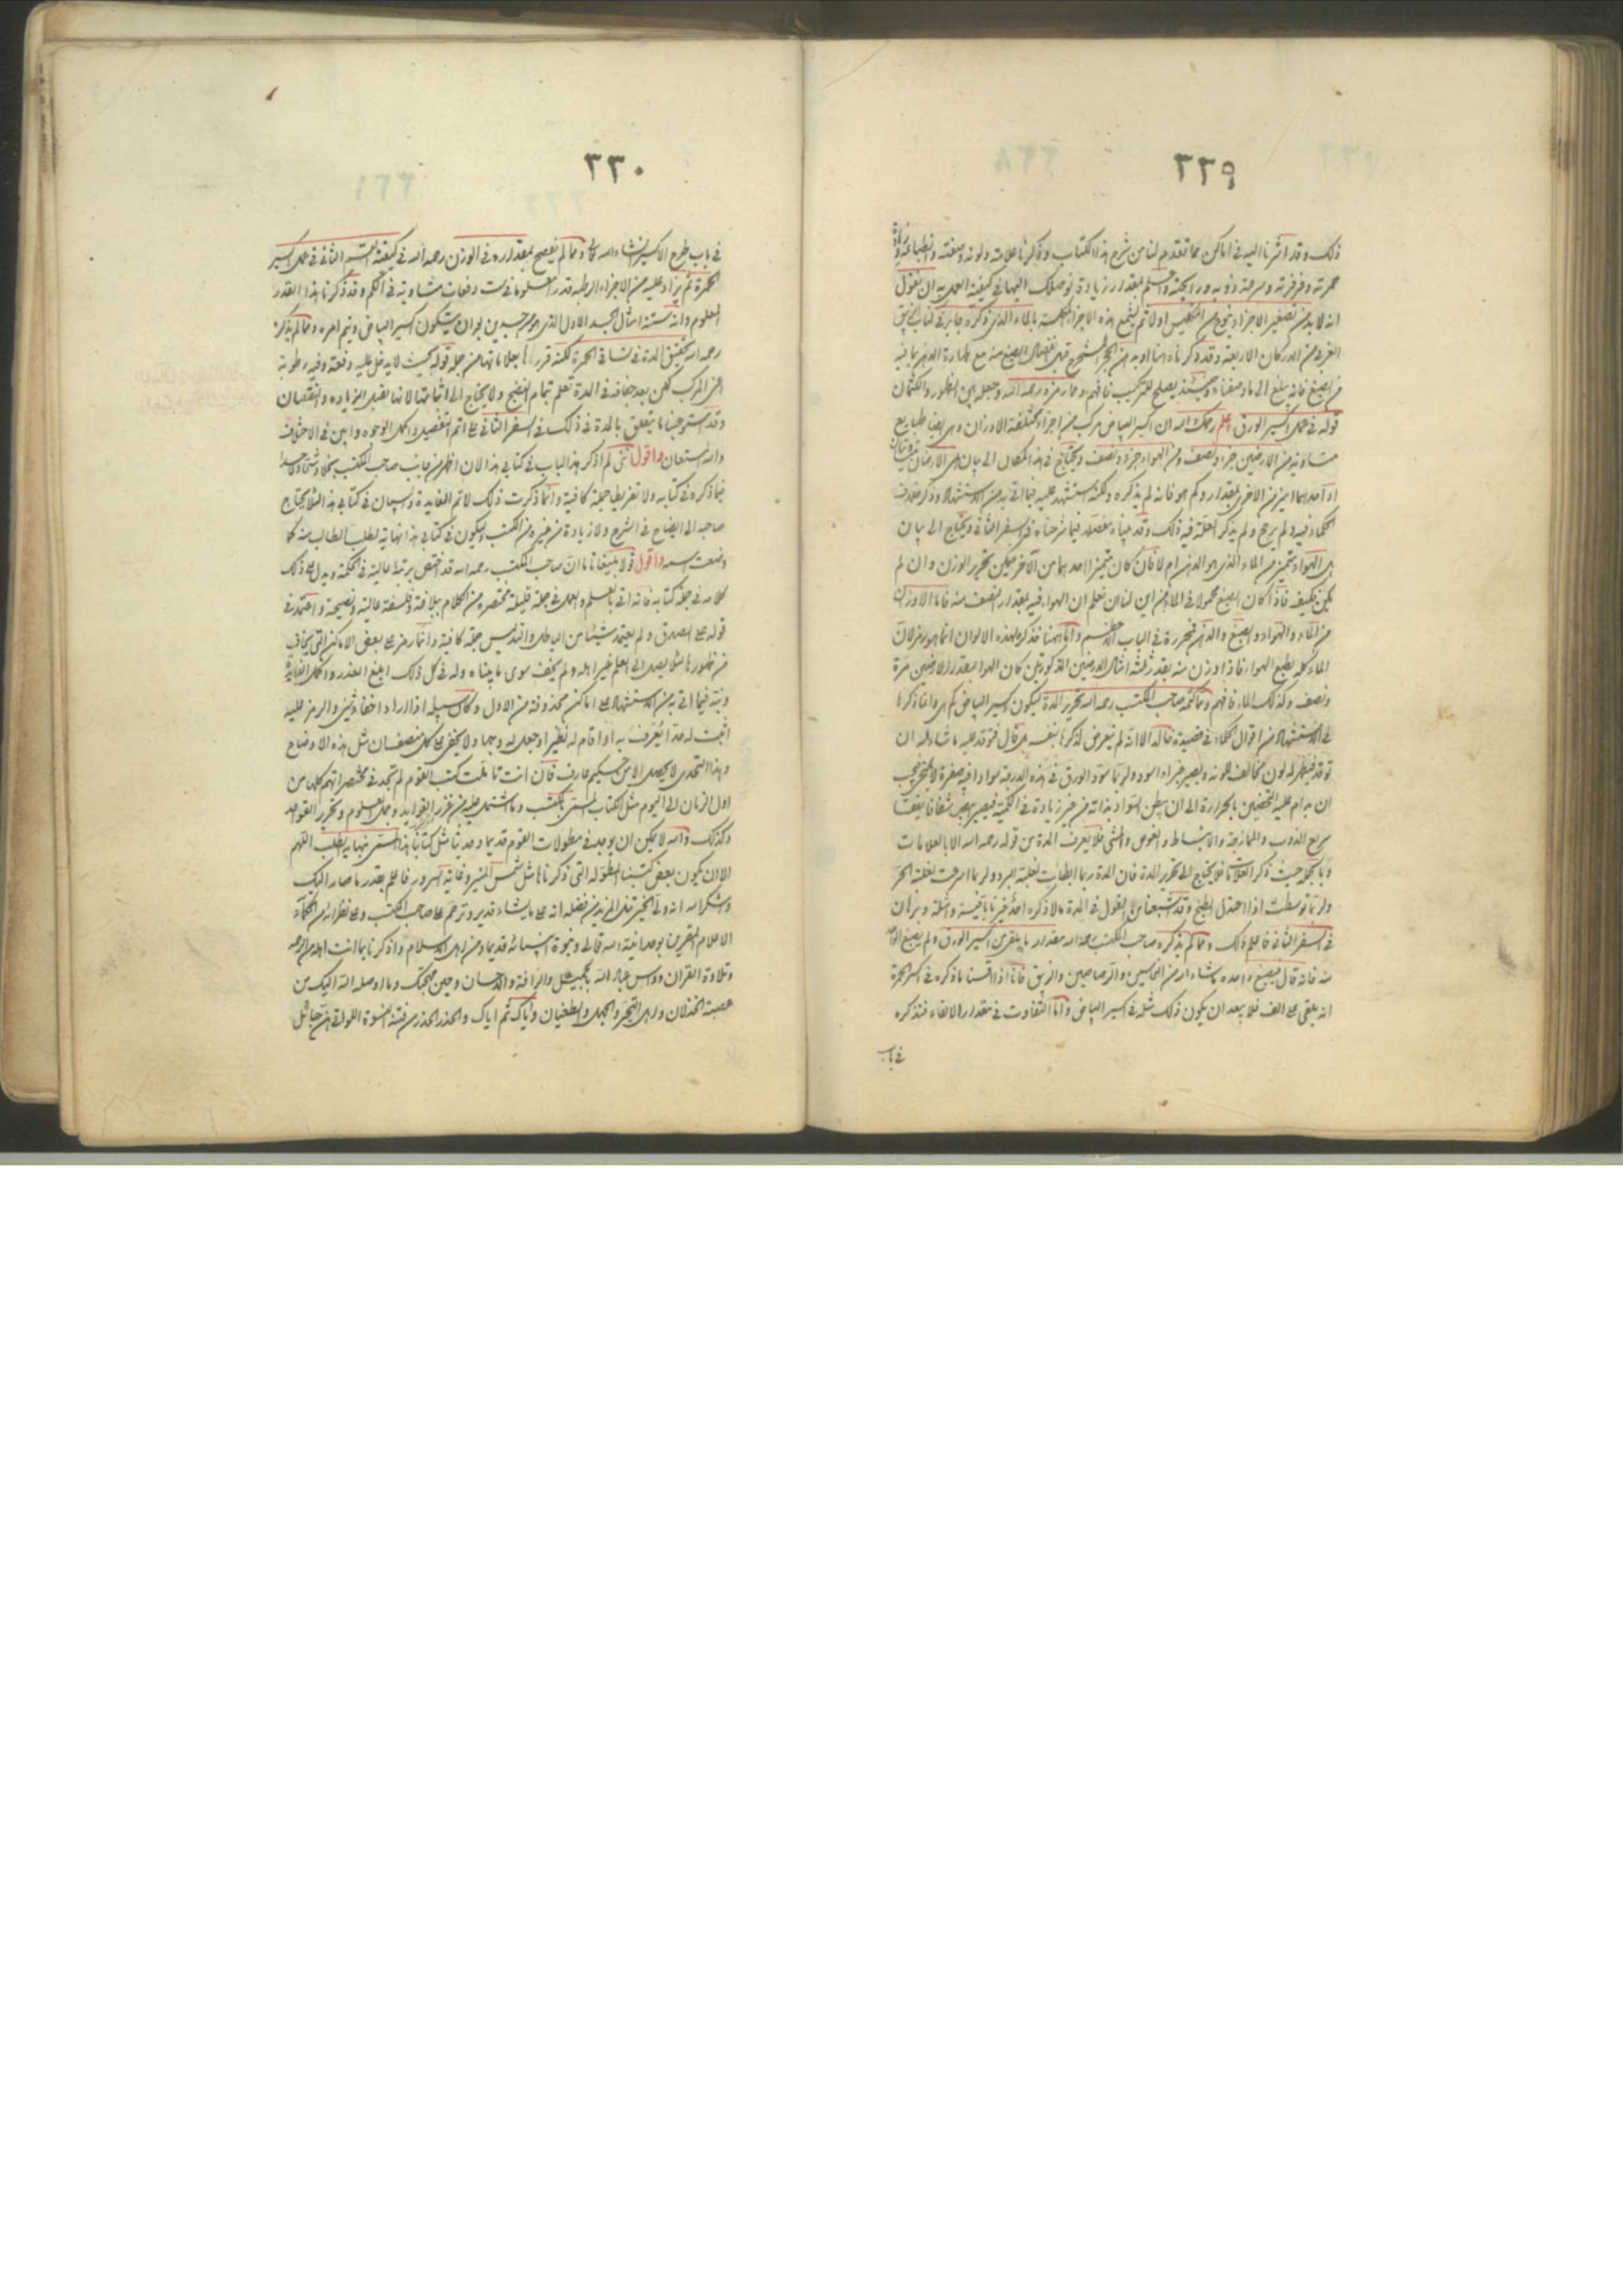 ٢٢٩
ذلك وقد اشرنا اليه في اماكن مما تقدم لنا من شرح هذا الكتاب وذكرنا علامته ولونه وصفته
حمرته وفرفرته وسرعة ذوبه ورائحته واعلم بمقدار زيادة نوصلك اليها في كيفية العمل به ان نقول
انه لا بد من تصغير الاجزاء من التكليس اولا ثم تشمع هذه الاجزاء بالماء الذي ذكره جابر في كتاب الزيبق
الغربي من الاركان الاربعة وقد ذكرناه هنا من الحجر المستخرج قبل الصبغ منه مع طهارة الدهن بما فيه
من الصبغ فانه يبلغ الى وحينئذ يصلح للتركيب فافهم رمزه رحمه الله وجعله بين الظهور والكتمان
قوله في عمل اكسير الورق اعلم رحمك الله ان اكسير البياض مركب من اجزاء مختلفة الاوزان وهي ايضا طبايع
متساوية من الارضين جزء ونصف ومن الهواء جزء ونصف ويحتاج في هذا المكان الى بيان هل الارضان
او احدهما ازيد من الاخر بمقدار وكم هو فانه لم يذكره ولكنه استشهد عليه فيما اتى به من الاستشهاد وذكر خلاف
الحكماء فيه ولم يرجح ولم يذكر العلة فيه ذلك وقد بيناه مفصلا فيما شرحناه في السفر الثاني ويحتاج الى بيان
هل الهواء متميز من الماء الذي هو الدهن ام لا فان كان متميزا احدهما من الآخر فيمكن تحرير الوزن وان لم
يكن فكيف فاذا كان الصبغ محمولا في الماء فمن اين لنا ان نعلم ان الهواء فيه بمقدار النصف منه فاما الاوزان
من الماء والهواء والصبغ والدهن فمحررة في الباب الاعظم واما هاهنا فذكره لهذه الالوان انما هو رمز لان
الماء كله بطبع الهواء فاذا وزن منه بقدر ثلثة امثال الارضين المذكورتين كان الهواء بمقدار الارضين مرة
ونصف وكذلك الماء فافهم ومما كتمه صاحب المكتسب رحمه الله تحرير المدة ليكون اكسير البياض كم هي وانما ذكرها
في الاستشهاد من اقوال الحكماء في قصيدة خالد الا انه لم يتعرض لذكرها بنفسه بل قال فتوقد عليه ما شاء له ان
توقد فيظهر له لون مخالف لونه ويصير خبزا اسود ولربما سود الورق في هذه الدرجة سوادا فيه صفرة لا
ان يدام عليه التحضين بالحرارة الى ان يبطن السواد بذاته من غير زيادة في الكمية فيصير حجرا شفافا يققا
سريع الذوب والممازجة والانبساط والغوص والمشي فلا يعرف المدة من قوله رحمه الله الا بالعلامات
وبالجملة حيث ذكر العلامات فلا يحتاج الى تحرير المدة فان المدة ربما ابطات لغلبة البرد ولربما اسرعت لغلبة الحر
ولربما توسطت اذا اعتدل الطبخ وقد اشبعنا القول في المدة ما لا ذكره احد غيرنا باقيسة وامثلة وبرهان
في السفر الثاني فاعلم ذلك ومما لم يذكره صاحب المكتسب رحمه الله مقدار ما يلقى من اكسير الورق ولم يصبغ
منه فانه قال يصبغ واحده ما شاء له من النحاسين والرصاصين والزيبق فانا اذا قسنا ما ذكره في اكسير الحمرة
انه يلقى على الف فلا يبعد ان يكون ذلك مثله في اكسير البياض واما التفاوت في مقدار الالقاء فنذكره
في باب
٢٣٠
في باب طرح الاكسير ان شاء الله تعالى ومما لم يفصح بمقداره في الوزن رحمه الله في كيفية القسم الثاني في عمل اكسير
الحمرة ثم يزاد عليه من الاجزاء الرطبة قدر معلوم في ست دفعات متساوية في الكم وقد ذكرنا هذا القدر
المعلوم وانه ستة امثال الجسد الاول الذي هو من جسدين بوزان يتكون اكسير البياض ويتم امره ومما لم يذكره
رحمه الله تحقيق المدة في تساقي الحمرة لكنه قررها بعلاماتها من جملة قوله بحيث لا يدخل عليه دفعة وفيه رطوبة
اعني المركب لكن بعد جفافه في المدة تعلم تمام النضج ولا يحتاج الى اثباتها لانها تقبل الزيادة والنقصان
وقد استوعبنا ما يتعلق بالمدة في ذلك في السفر الثاني على اتم التفصيل واكمل الوجوه وابين في الاختلاف
والله المستعان واقول انني لم اذكر هذا الباب في كتابي هذا الا ان اظهر من جانب صاحب المكتسب بخلا وشحا وحسدا
فيما ذكره في كتابه ولا تفريطا جملة كافية وانما ذكرت ذلك لاتم الفايدة والبيان في كتابي هذا لئلا يحتاج
صاحبه الى ايضاح في الشرح ولا زيادة من غيره من الكتب وليكون في كتابي هذا نهاية لطلب الطالب منه كما
وضعت اسمه واقول قولا بليغا تاما ان صاحب المكتسب رحمه الله قد اختص برتبة عالية في الحكمة ويدل على ذلك
كلامه في جملة كتابه فانه اتى بالعلم والعمل في جملة قليلة مختصرة من الكلام ببلاغة وفلسفة عالية ونصيحة واعتمد في
قوله على الصدق ولم يعتمد شيئا من الباطل والتدليس جملة كافية وانما رمز على بعض الاماكن التي يخاف
من ظهورها لئلا يصل الى العلم غير اهله ولم يخف سوى ما بيناه وله في كل ذلك ابلغ العذر واكمل الغاية
ونبه فيما اتى به من الاستشهاد على اماكن محذوفة من الاول وكان سبيله اذا اراد اخفاء شيء والرمز عليه
اثبت له حدا يعرف به او اقام له نظيرا وجعل له وجها ولا يخفى على كل منصف ان مثل هذه الاوضاع
وهذا التحدي لا يحصل الا من حكيم عارف فان انت تاملت كتب القوم لم تجد في مختصراتهم كلها من
اول الزمان الى اليوم مثل الكتاب المسمى بالمكتسب وما اشتمل عليه من غرر الفوايد وجمل العلوم وتحرير القواعد
وكذلك والله لا يمكن ان يوجد في مطولات القوم قديما وحديثا مثل كتابنا هذا المسمى نهاية الطلب اللهم
الا ان يكون بعض كتبنا المطولة التي ذكرناها مثل الشمس المنير وغاية السرور فاعلم بقدر ما صار اليك
واشكر الله انه ولي الخير تنل المزيد من فضله انه على ما يشاء قدير وترحم على صاحب المكتسب وعلى نظرائه من الحكماء
الاعلام المقرين بوحدانية الله تعالى ونبوة انبيائه قديما ومن اهل الاسلام واذكرنا بما انت اهله من الرحمة
وتلاوة القران وواس عباد الله بجميل والرافة والاحسان وصن مهجتك وما اوصله الله اليك من
عصبة الخذلان واهل التجبر والجهل والطغيان واياك ثم اياك والحذر الحذر من فتنة النسوة اللواتي هن حبائل